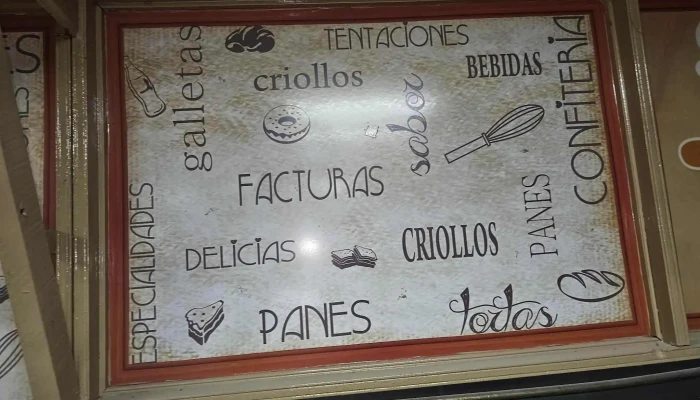 TENTACIONES
galletas
criollos
BEBIDAS
sabor
CONFITERÍA
FACTURAS
PANES
ESPECIALIDADES
DELICIAS
CRIOLLOS
PANES
tortas